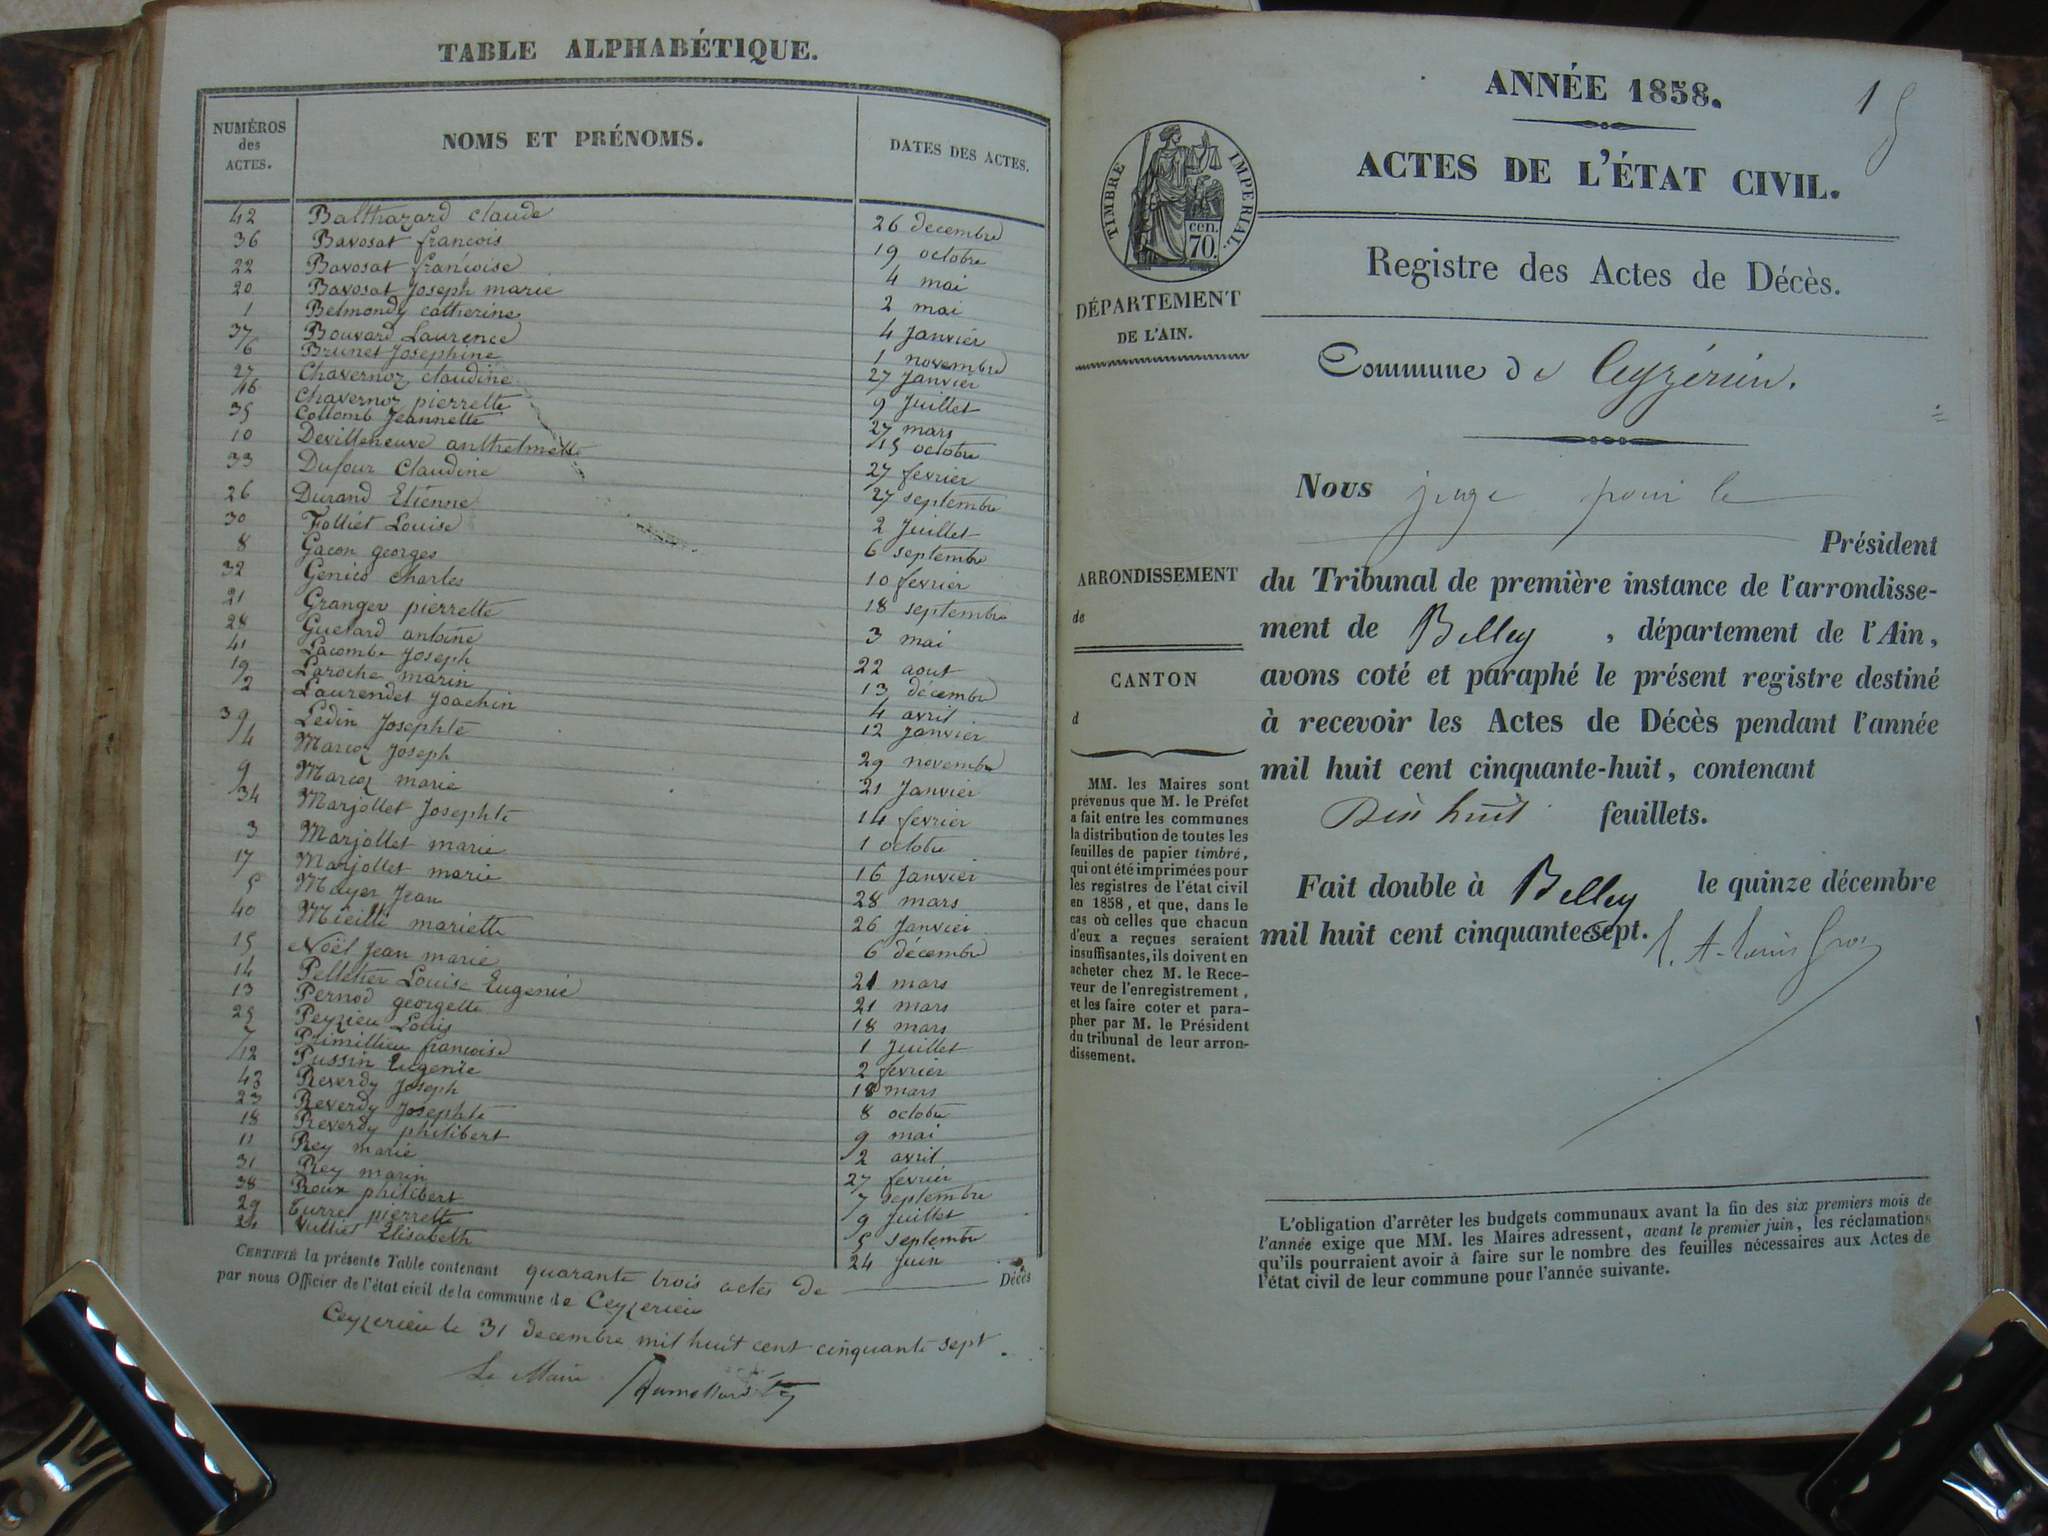 TABLE ALPHABÉTIQUE.
NUMÉROS des ACTES. NOMS ET PRÉNOMS. DATES DES ACTES.
42 Balthazard claude 26 decembre
36 Bavosat francois 19 octobre
22 Bavosat francoise 4 mai
20 Bavosat Joseph marie 2 mai
1 Belmondy catherine 4 Janvier
37 Bouvard Laurence 1 novembre
6 Brunet Josephine 27 Janvier
27 Chavernoz claudine 9 Juillet
16 Chavernoz pierrette 27 mars
35 Collomb Jeannette 15 octobre
10 Devilleneuve anthelmette 27 fevrier
33 Dufour Claudine 27 septembre
26 Durand Etienne 2 Juillet
30 Folliet Louise 6 septembre
8 Gacon georges 10 fevrier
32 Genico charles 18 septembre
21 Granger pierrette 3 mai
28 Guetard antoine 22 aout
41 Lacombe Joseph 13 décembre
19 Laroche marin 4 avril
2 Laurendet Joachin 12 Janvier
39 Ledin Josephte 29 novembre
4 Marcoz Joseph 21 Janvier
9 Marcoz marie 14 fevrier
34 Marjollet Josephte 1 octobre
3 Marjollet marie 16 Janvier
17 Marjollet marie 28 mars
5 Mayer Jean 26 Janvier
40 Mieille mariette 6 décembre
15 Noël Jean marie 21 mars
14 Pelletier Louise Eugenie 21 mars
13 Pernod georgette 18 mars
25 Peyzieu Louis 1 Juillet
7 Primillieu francoise 2 fevrier
12 Pussin Eugenie 18 mars
43 Reverdy Joseph 8 octobre
23 Reverdy Josephte 9 mai
18 Reverdy philibert 2 avril
11 Rey marie 27 fevrier
31 Rey marin 7 septembre
38 Roux philibert 9 Juillet
29 Turrel pierrette 5 septembre
24 Vulliet Elisabeth 24 Juin
CERTIFIÉ la présente Table contenant quarante trois actes de Décès
par nous Officier de l'état civil de la commune de Ceyzerieu
Ceyzerieu le 31 decembre mil huit cent cinquante sept.
Le Maire
ANNÉE 1858.
1
ACTES DE L'ÉTAT CIVIL.
TIMBRE IMPERIAL.
cen.
70.
Registre des Actes de Décès.
DÉPARTEMENT
DE L'AIN.
Commune de Ceyzérieu.
Nous juge pour le
Président
du Tribunal de première instance de l'arrondisse-
ment de Belley, département de l'Ain,
avons coté et paraphé le présent registre destiné
à recevoir les Actes de Décès pendant l'année
mil huit cent cinquante-huit, contenant
Dix huit feuillets.
Fait double à Belley le quinze décembre
mil huit cent cinquante-sept.
ARRONDISSEMENT
de
CANTON
d
MM. les Maires sont
prévenus que M. le Préfet
a fait entre les communes
la distribution de toutes les
feuilles de papier timbré,
qui ont été imprimées pour
les registres de l'état civil
en 1858, et que, dans le
cas où celles que chacun
d'eux a reçues seraient
insuffisantes, ils doivent en
acheter chez M. le Rece-
veur de l'enregistrement,
et les faire coter et para-
pher par M. le Président
du tribunal de leur arron-
dissement.
L'obligation d'arrêter les budgets communaux avant la fin des six premiers mois de
l'année exige que MM. les Maires adressent, avant le premier juin, les réclamations
qu'ils pourraient avoir à faire sur le nombre des feuilles nécessaires aux Actes de
l'état civil de leur commune pour l'année suivante.